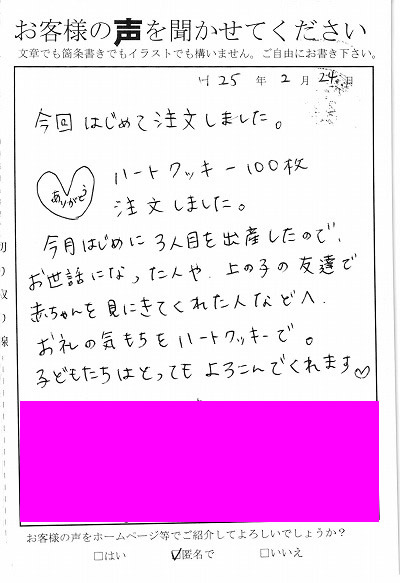 お客様の声を聞かせてください
文章でも箇条書きでもイラストでも構いません。ご自由にお書き下さい。
H25年2月24日
今回はじめて注文しました。
ありがとう
ハートクッキー100枚
注文しました。
今月はじめに3人目を出産したので、
お世話になった人や、上の子の友達で
赤ちゃんを見にきてくれた人などへ
お礼の気もちをハートクッキーで。
子どもたちはとってもよろこんでくれます♡
切り取り線
お客様の声をホームページ等でご紹介してよろしいでしょうか？
□はい ☑匿名で □いいえ